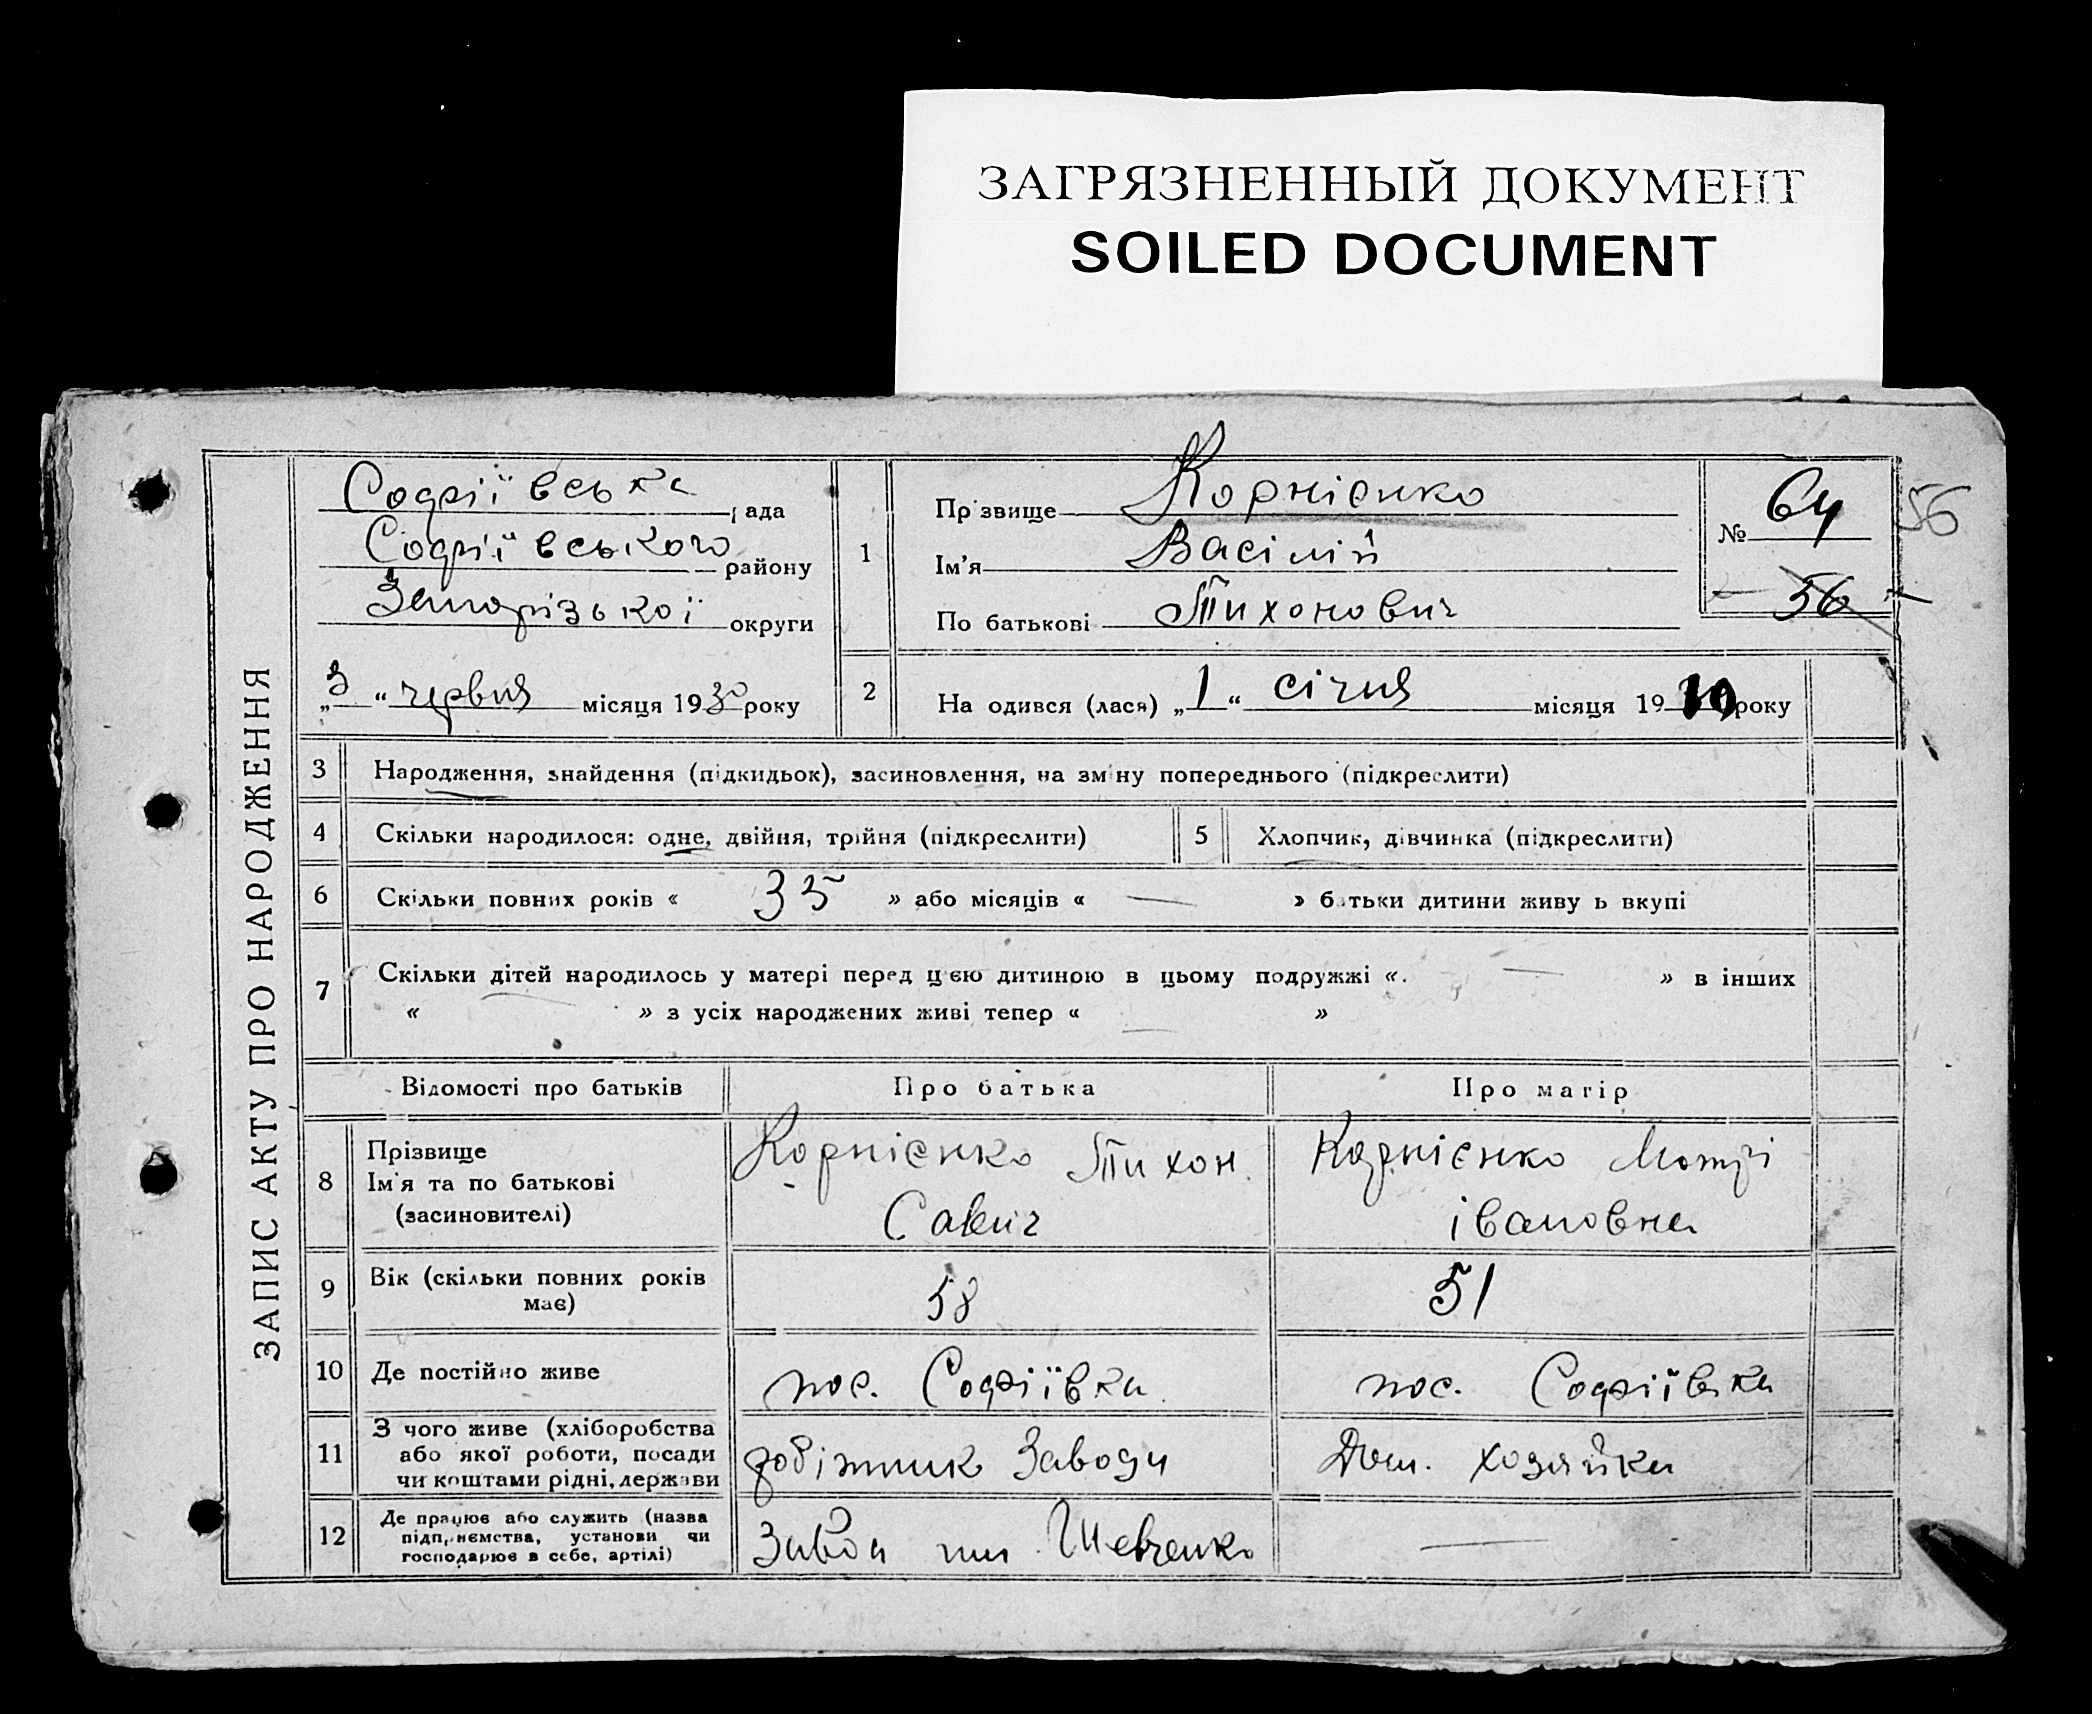 ЗАГРЯЗНЕННЫЙ ДОКУМЕНТ
SOILED DOCUMENT
ЗАПИС АКТУ ПРО НАРОДЖЕННЯ
Софіївська рада
Софіївського району
Запорізької округи
„3“ червня місяця 1930 року
1
Прізвище Корнієнко
Ім'я Васілій
По батькові Тихонович
№ 64
56
56
2 На одився (лася) „1“ січня місяця 1910 року
3 Народження, знайдення (підкидьок), засиновлення, на зміну попереднього (підкреслити)
4 Скільки народилося: одне, двійня, трійня (підкреслити)
5 Хлопчик, дівчинка (підкреслити)
6 Скільки повних років « 35 » або місяців « — » батьки дитини живу ь вкупі
7 Скільки дітей народилось у матері перед цією дитиною в цьому подружжі « — » в інших
« — » з усіх народжених живі тепер « — »
Відомості про батьків Про батька Про матір
8 Прізвище
Ім'я та по батькові
(засиновителі)
Корнієнко Тихон
Савич
Корнієнко Мотрі
івановна
9 Вік (скільки повних років
має)
58
51
10 Де постійно живе
пос. Софіївка
пос. Софіївка
11 З чого живе (хліборобства
або якої роботи, посади
чи коштами рідні, держави
робітник Заводу
Дом. хозяйка
12 Де працює або служить (назва
підприємства, установи чи
господарює в себе, артілі)
Завод им Шевченко
—